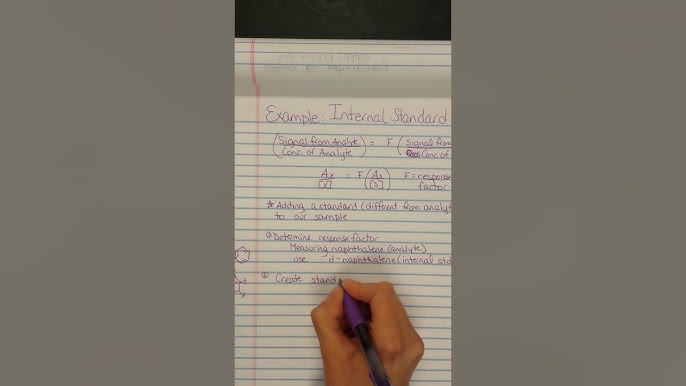 Example: Internal Standard
(Signal from Analyte / Conc. of Analyte) = F (Signal from / Conc of
Ax / [X] = F (As / [S]) F = response factor
* Adding a standard (different from analyt
to our sample
① Determine response factor
Measuring naphthalene (analyte)
use d-naphthalene (internal std
② Create stand